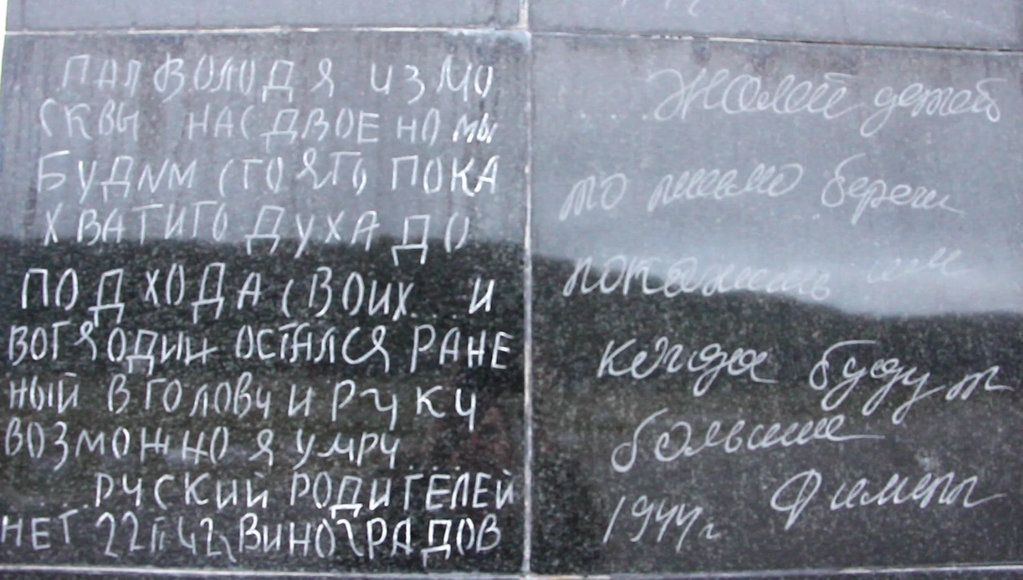 ПАЛ ВОЛОДЯ ИЗ МО
СКВЫ НАС ДВОЕ НО МЫ
БУДИМ СТОЯТЬ ПОКА
ХВАТИТЬ ДУХА ДО
ПОДХОДА СВОИХ И
ВОТ Я ОДИН ОСТАЛСЯ РАНЕ
НЫЙ В ГОЛОВУ И РУКУ
ВОЗМОЖНО Я УМРУ
РУСКИЙ РОДИТЕЛЕЙ
НЕТ 22 II 42г ВИНОГРАДОВ
Жалей детей
то письмо береги
покажишь им
когда будут
больше
1944 г